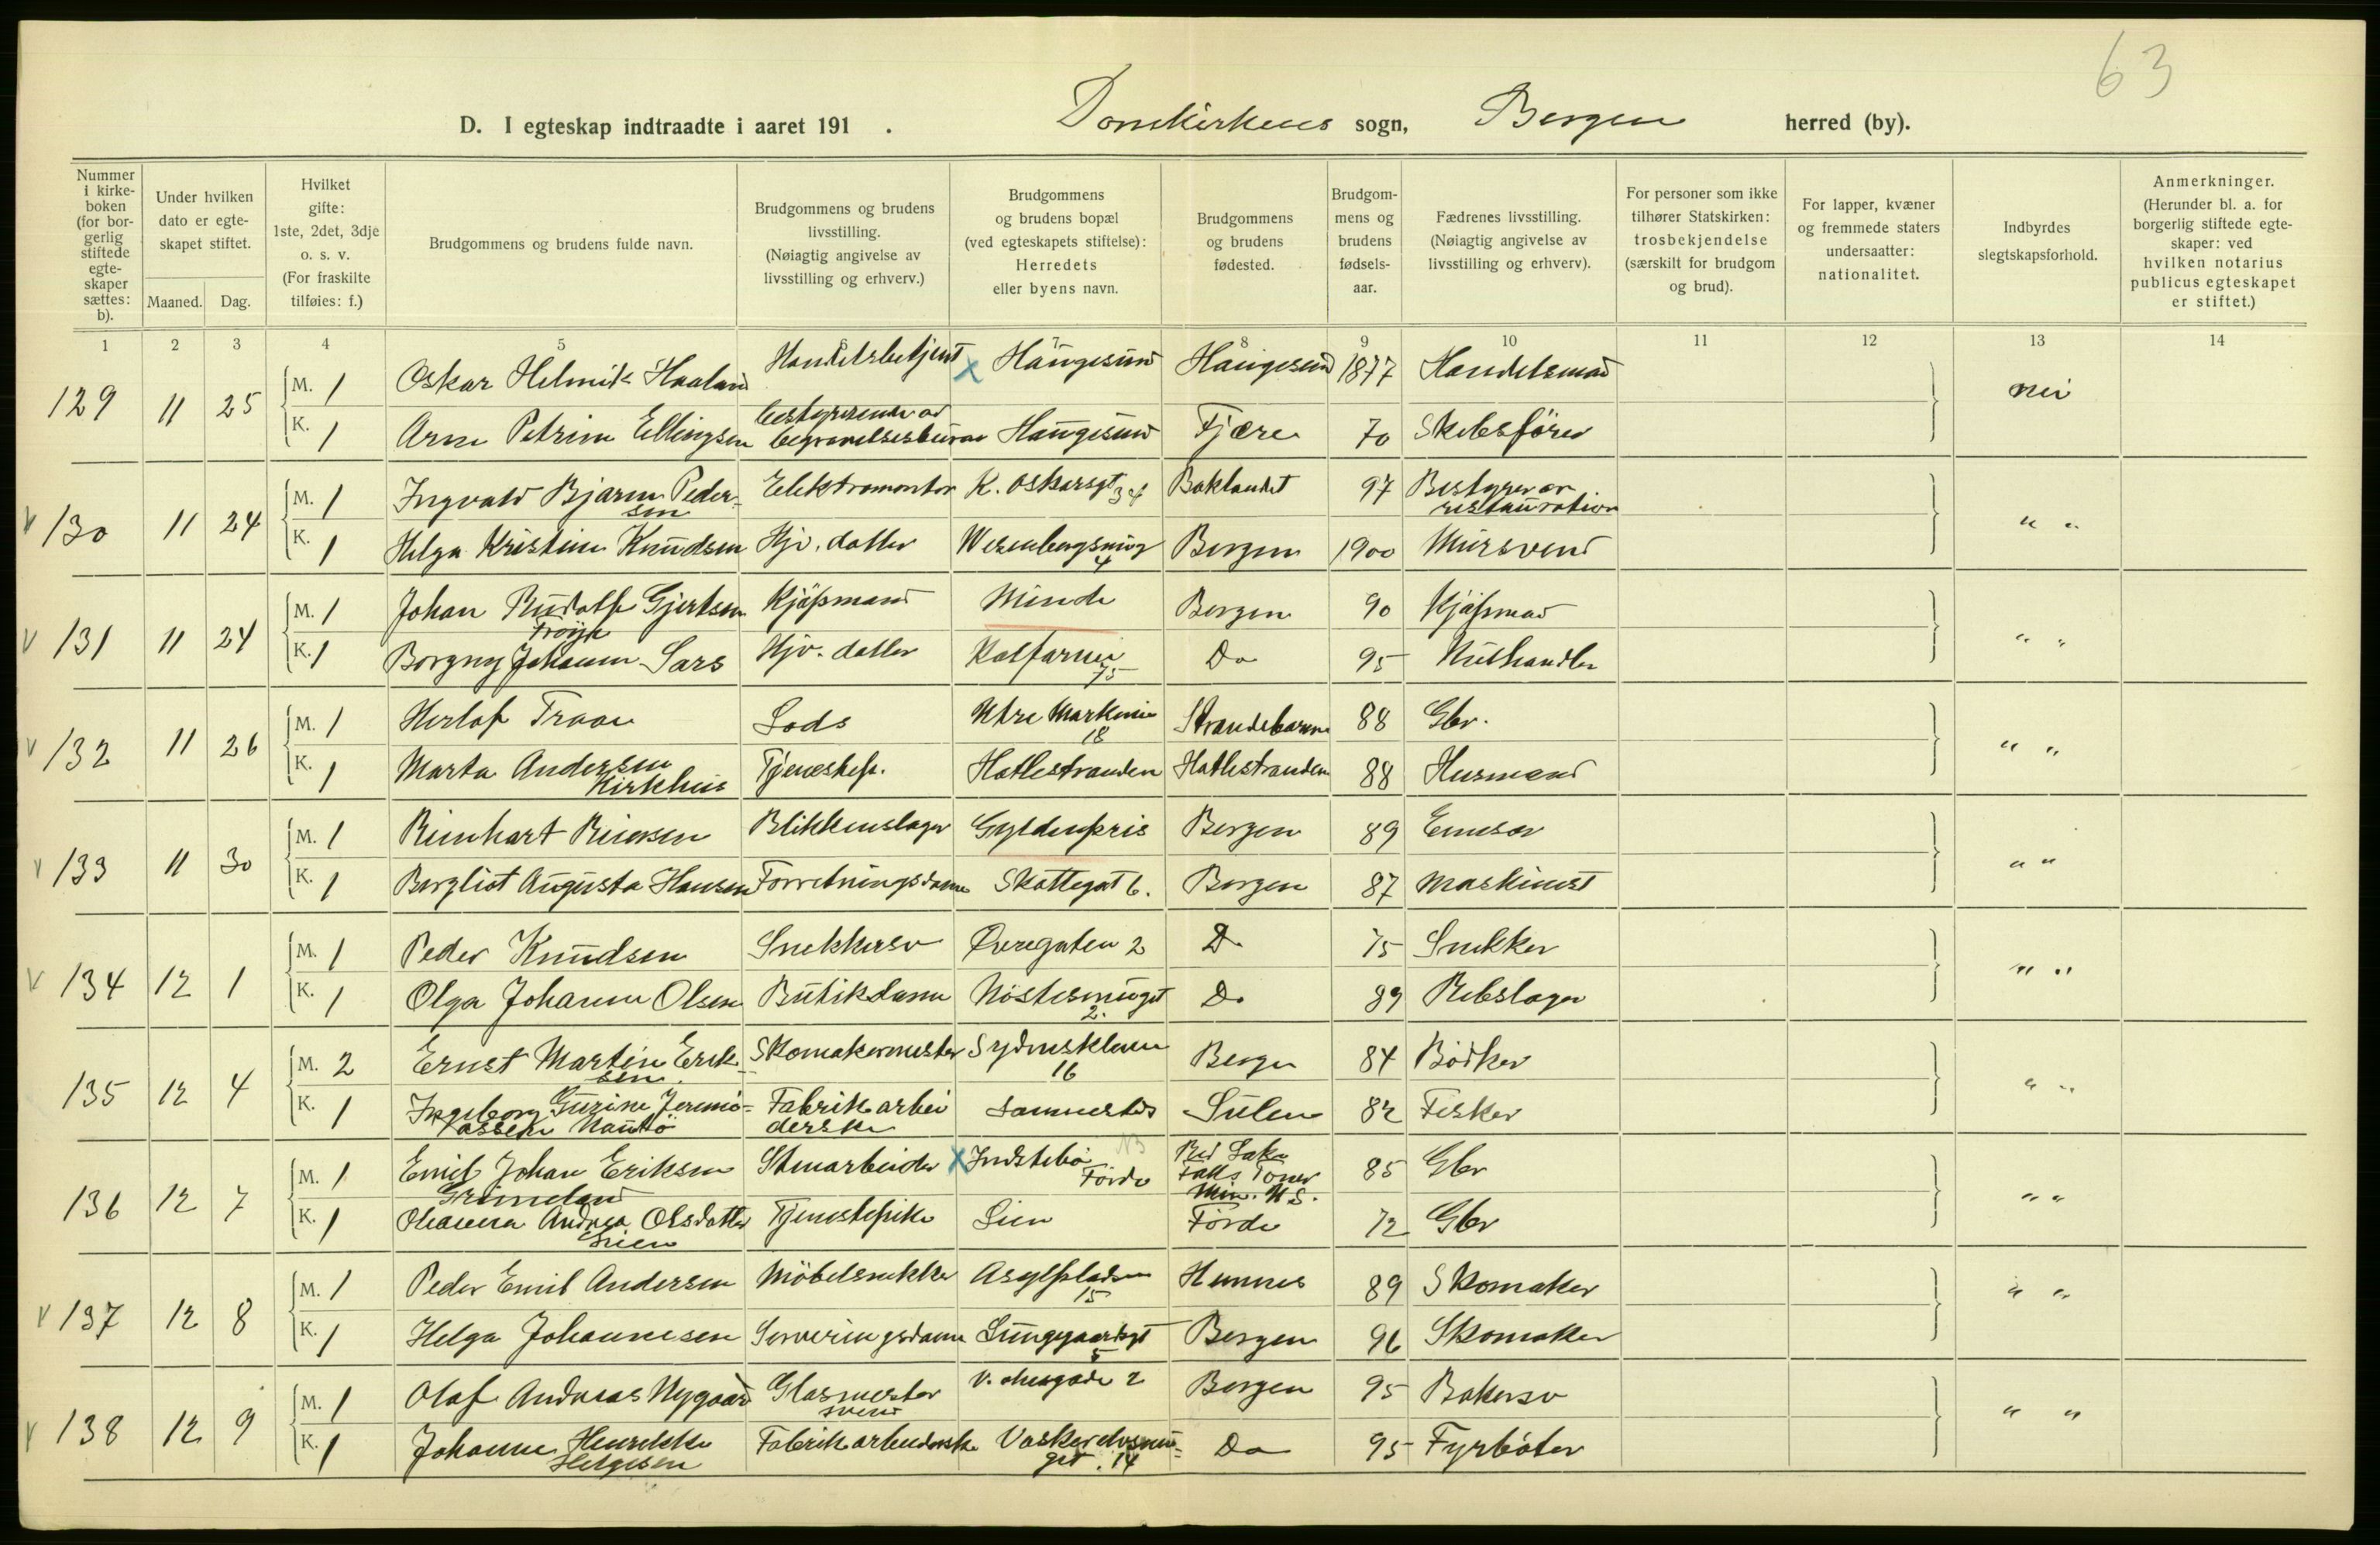 63
D. I egteskap indtraadte i aaret 191 . Domkirkens sogn, Bergen herred (by).
Nummer i kirke-boken (for bor-gerlig stiftede egte-skaper sættes: b).
Under hvilken dato er egte-skapet stiftet.
Maaned. Dag.
Hvilket gifte: 1ste, 2det, 3dje o. s. v. (For fraskilte tilføies: f.)
Brudgommens og brudens fulde navn.
Brudgommens og brudens livsstilling. (Nøiagtig angivelse av livsstilling og erhverv.)
Brudgommens og brudens bopæl (ved egteskapets stiftelse): Herredets eller byens navn.
Brudgommens og brudens fødested.
Brudgom-mens og brudens fødsels-aar.
Fædrenes livsstilling. (Nøiagtig angivelse av livsstilling og erhverv).
For personer som ikke tilhører Statskirken: trosbekjendelse (særskilt for brudgom og brud).
For lapper, kvæner og fremmede staters undersaatter: nationalitet.
Indbyrdes slegtskapsforhold.
Anmerkninger. (Herunder bl. a. for borgerlig stiftede egte-skaper: ved hvilken notarius publicus egteskapet er stiftet.)
1 2 3 4 5 6 7 8 9 10 11 12 13 14
129 11 25 M. 1 Oskar Helmik Haaland Handelsbetjent x Haugesund Haugesund 1877 Handelsmand nei
K. 1 Arne Petrine Ellingsen bestyrerinde av begravelsesbureau Haugesund Fjære 70 Skibsfører
V 130 11 24 M. 1 Ingvald Bjarne Peder-sen Elektromontør K. Oskarsgt 34 Baklandet 97 Bestyrer av restauration " "
K. 1 Helga Kristine Knudsen Hjv. datter Wesenbergsmug 4 Bergen 1900 Mursvend
V 131 11 24 M. 1 Johan Rudolf Gjertsen Frøyk Kjøpmand Minde Bergen 90 Kjøpmand " "
K. 1 Borgny Johanne Sars Hjv. datter Kalfarvei 75 Do 95 Huthandler
V 132 11 26 M. 1 Herlof Traae Lods Ytre Markevei 18 Strandebarm 88 Gbr. " "
K. 1 Marta Andersen Kirkhus Tjenestep. Hatlestranden Hatlestranden 88 Husmand
V 133 11 30 M. 1 Reinhart Blikkenslager Gyldenpris Bergen 89 " "
K. 1 Bergliot Augusta Hansen Forretningsdame Skottegat 6. Bergen 87 Maskinist
V 134 12 1 M. 1 Peder Knudsen Snekkersv Øvregaten 2 Do 75 Snekker " "
K. 1 Olga Johanne Olsen Butikdame Nøstesmuget 2. Do 89 Rebslager
135 12 4 M. 2 Ernst Martin Erik-sen Skomakermester Sydneskleven 16 Bergen 84 Bødker " "
K. 1 Ingeborg Gurine Jeremi-assen Fabrikarbei derske Sulen 82 Fisker
136 12 7 M. 1 Emil Johan Eriksen Grimeland Stenarbeider x Indstebø Førde Red Lake Falls Min. U S. 85 Gbr " "
K. 1 Andrea Olsdatter Lien Tjenestepike Lien Førde 72 Gbr
V 137 12 8 M. 1 Peder Emil Andersen Møbelsnekker Asylpladsen 15 Hennes 89 Skomaker " "
K. 1 Helga Johannesen Serveringsdame Lungegaardsgt 5 Bergen 96 Skomaker
V 138 12 9 M. 1 Olaf Andreas Nygaard Glasmester svend 2 Bergen 95 Bakersv " "
K. 1 Johanne Henrikke Helgesen Fabrikarbeiderske Vaskerelvsmu-get. 14 Do 95 Fyrbøter